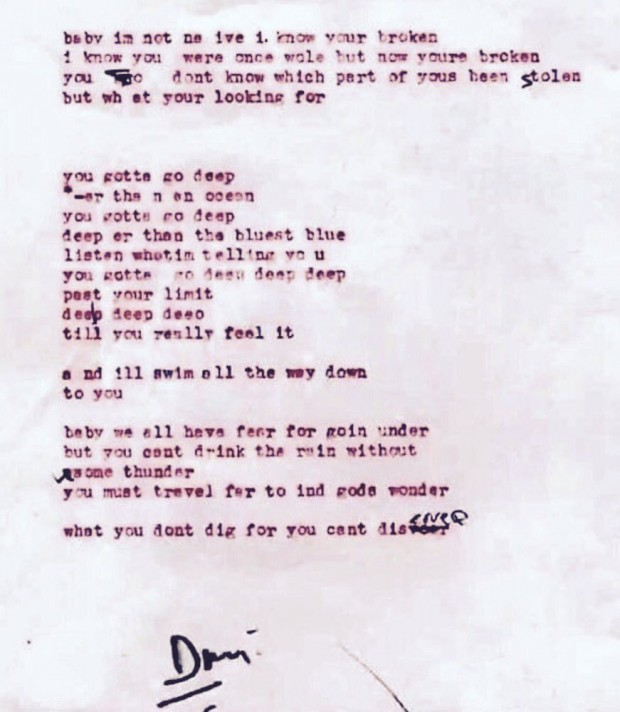 baby im not na ive i. know your broken
i know you were once wole but now youre broken
you dont know which part of yous been stolen
but wh at your looking for
you gotta go deep
er tha n an oceen
you gotta go deep
deep er than the bluest blue
listen whatim telling yo u
you gotta go deep deep deep
past your limit
deep deep deeo
till you really feel it
a nd ill swim all the way down
to you
baby we all have fear for goin under
but you cant drink the rain without
some thunder
you must travel far to ind gods wonder
what you dont dig for you cant discover